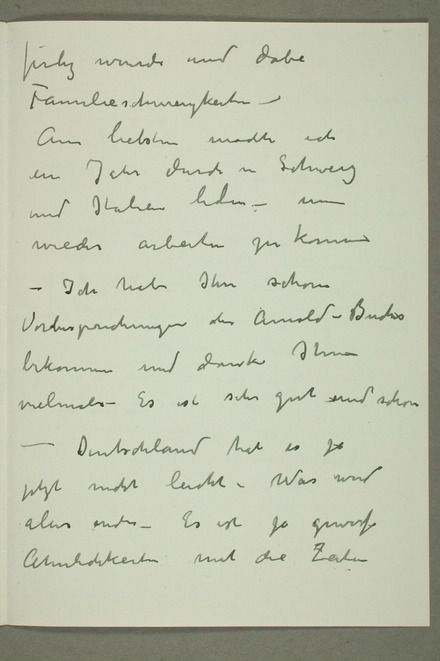 wurde und dabei
Familienschwierigkeiten –
Am liebsten möchte ich
ein Jahr durch die Schweiz
und Italien – um
wieder arbeiten zu können
– Ich habe Ihre schönen
Vorbesprechungen des Arnold-Buches
bekommen und danke Ihnen
vielmals – Es ist sehr gut und schön
– Deutschland hat es ja
jetzt nicht leicht – Was wird
alles – Es ist ja gewisse
Ähnlichkeiten mit die Zeiten